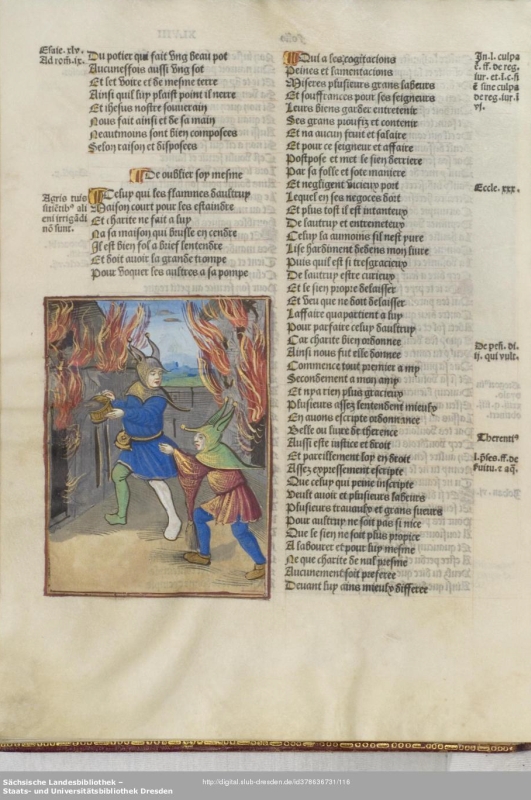 Esaie.xlv.
Ad rom.ix.
Du potier qui fait vng beau pot
Aucuneffois aussi vng sot
Et set voire et de mesme terre
Ainsi quil luy plaist point il nerre
Et ihesus nostre souuerain
Nous fait ainsi et de sa main
Neautmoins sont bien composees
Selon raison et disposees
De oublier soy mesme
Agris tuis
alieni irrigādi
nō sunt.
Celuy qui les flammes daultruy
Maison court pour les estaindre
Et charite ne fait a luy
Na sa maison qui brusle en cendre
Il est bien fol a brief lentendre
Et doit auoir la grande trompe
Pour voguer les aultres a sa pompe
Qui a ses cogitacions
Peines et lamentacions
Miseres plusieurs grans labeurs
Et souffrances pour ses seigneurs
Leurs biens garder entretenir
Ses grans prouffiz et contenir
Et na aucun fruit et salaire
Et pour ce seigneur et affaire
Postpose et met le sien derriere
Par sa folle et sote maniere
Et negligent vicieux port
Lequel en ses negoces doit
Et plus tost il est intanteux
De lautruy et entremeteux
Celuy la aumoins sil nest pure
Lise hardiment dedens mon liure
Puis quil est si tresgracieux
De lautruy estre curieux
Et le sien propre delaisser
Et veu que ne doit delaisser
Laffaire quapartient a luy
Pour parfaire celuy daultruy
Car charite bien ordonnee
Ainsi nous fut elle donnee
Commence tout premier a my
Secondement a mon amy
Et nya rien plus gracieux
Plusieurs assez lentendent mieulx
En auons escripte ordonnance
Belle ou liure de therence
Aussi este iustice et droit
Et pareillement soy en droit
Assez expressement escripte
Que celuy qui peine inscripte
Veult auoir et plusieurs labeurs
Plusieurs trauaulx et grans sueurs
Pour aultruy ne soit pas si nice
Que le sien ne soit plus propice
A labourer et pour luy mesme
Ne que charite de nul presme
Aucunement soit preferee
Deuant luy ains mieulx differee
In.l. culpa
ē. ff. de reg.
iur. et.l.c.si
ē sine culpa
de reg.iur.l
vj.
Eccle. xxx.
De peñ. di.
ij. qui vult.
Therenti⁹
Sächsische Landesbibliothek –
Staats- und Universitätsbibliothek Dresden
http://digital.slub-dresden.de/id378636731/116